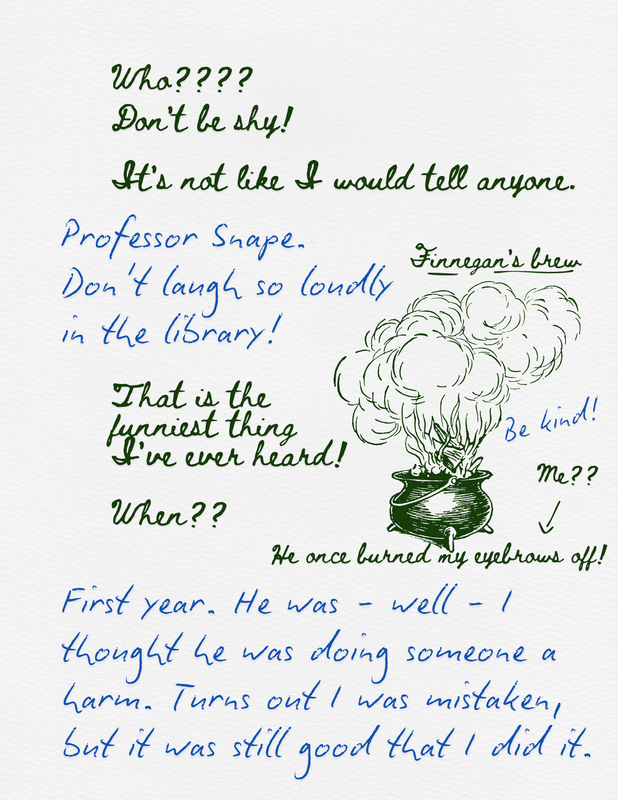 Who????
Don't be shy!
It's not like I would tell anyone.
Professor Snape.
Don't laugh so loudly
in the library!
Finnegan's brew
Be kind!
Me??
He once burned my eyebrows off!
That is the
funniest thing
I've ever heard!
When??
First year. He was - well - I
thought he was doing someone a
harm. Turns out I was mistaken,
but it was still good that I did it.